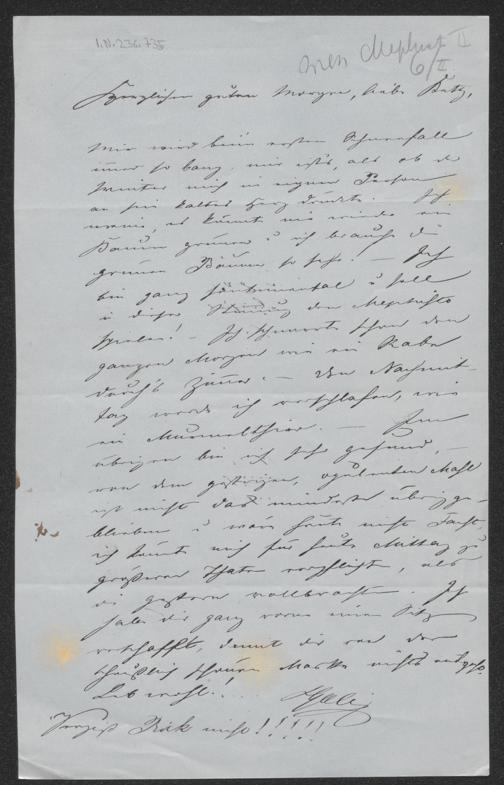 I.N. 236.735
Mephisto II
6/II
Herzlichen guten Morgen, liebe
Mir wird beim ersten Schneefall
immer so bang, mir ist's, als ob der
Winter mich in eigner Person
an sein kaltes Herz drückte. Ich
mein, es könnt nie wieder ein
Baum grünen u ich brauche die
grünen Bäume so sehr! — Ich
bin ganz sentimental u soll
in dieser Stimmung den Mephisto
spielen! — Ich schnurre schon den
ganzen Morgen wie ein Rabe
durch's Zimmer. — Den Nachmit-
tag werde ich verschlafen, wie
ein Murmelthier. — Im
übrigen bin ich sehr gesund, —
von dem gestrigen, opulenten Mahl
ist nicht das mindeste übrigge-
blieben u wär heute nicht
ich könnte mich für heute Mittag zu
größeren Thaten verpflichten, als
die gestern vollbrachten. Ich
habe dir ganz vorne einen Sitz
verschafft, damit dir von der
scheußlich schönen Maske nichts entgeht.
Leb wohl!
Vergiß nicht!!!!!